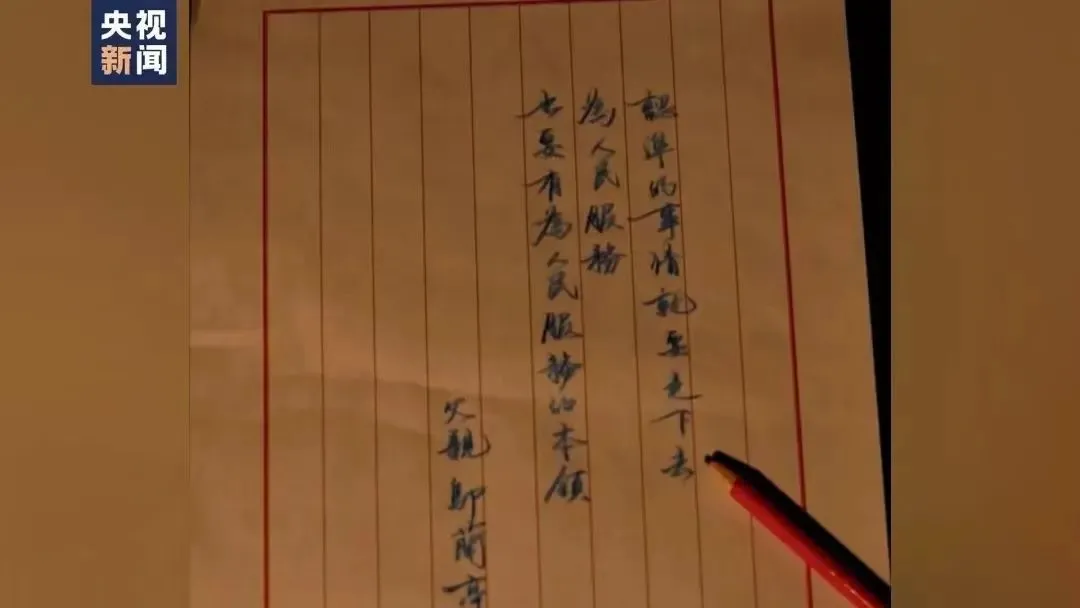 央视
新闻
認準的事情就要走下去
為人民服務
也要有為人民服務的本領
父親 蘭亭